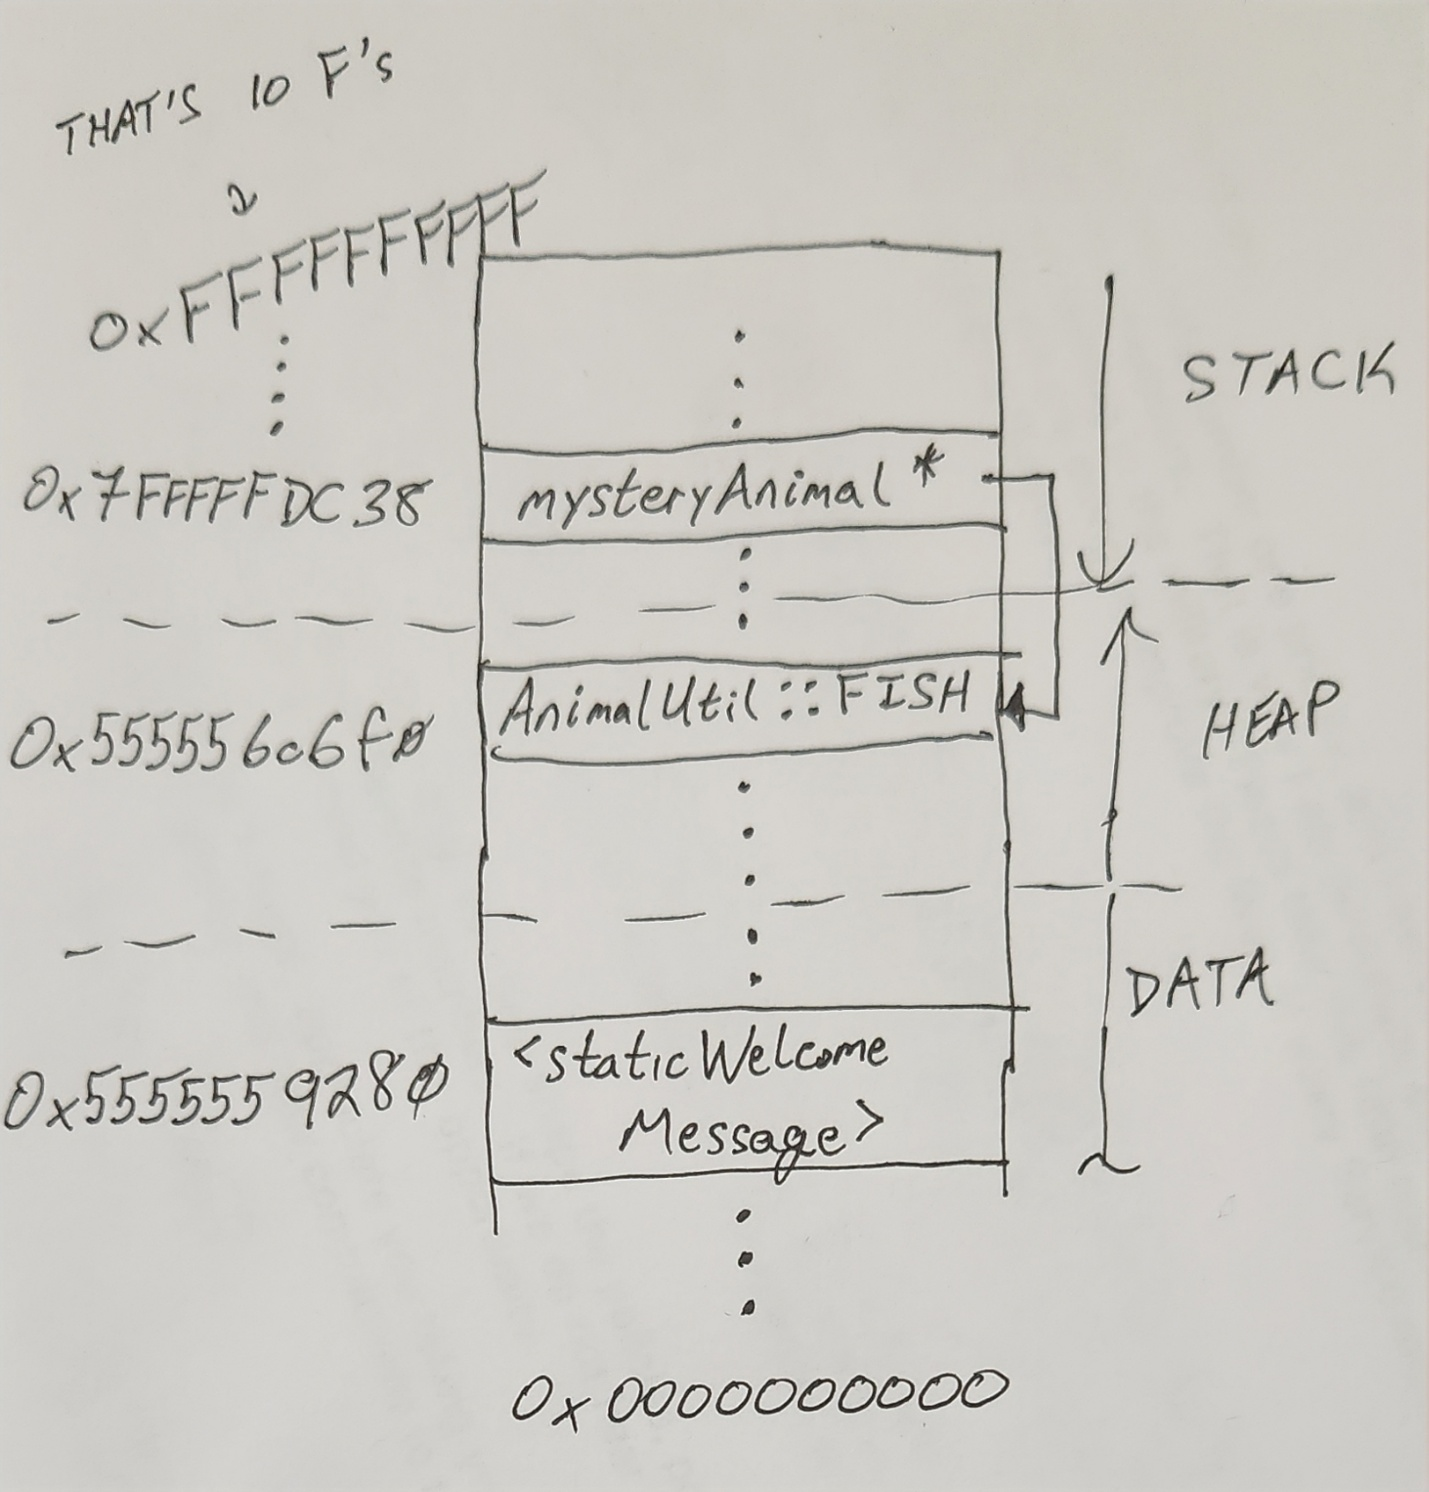 THAT'S 10 F's
0xFFFFFFFFFF
STACK
0x7FFFFFDC38
mysteryAnimal *
0x555556c6f0
AnimalUtil::FISH
HEAP
DATA
0x5555559280
<staticWelcome
Message>
0x0000000000